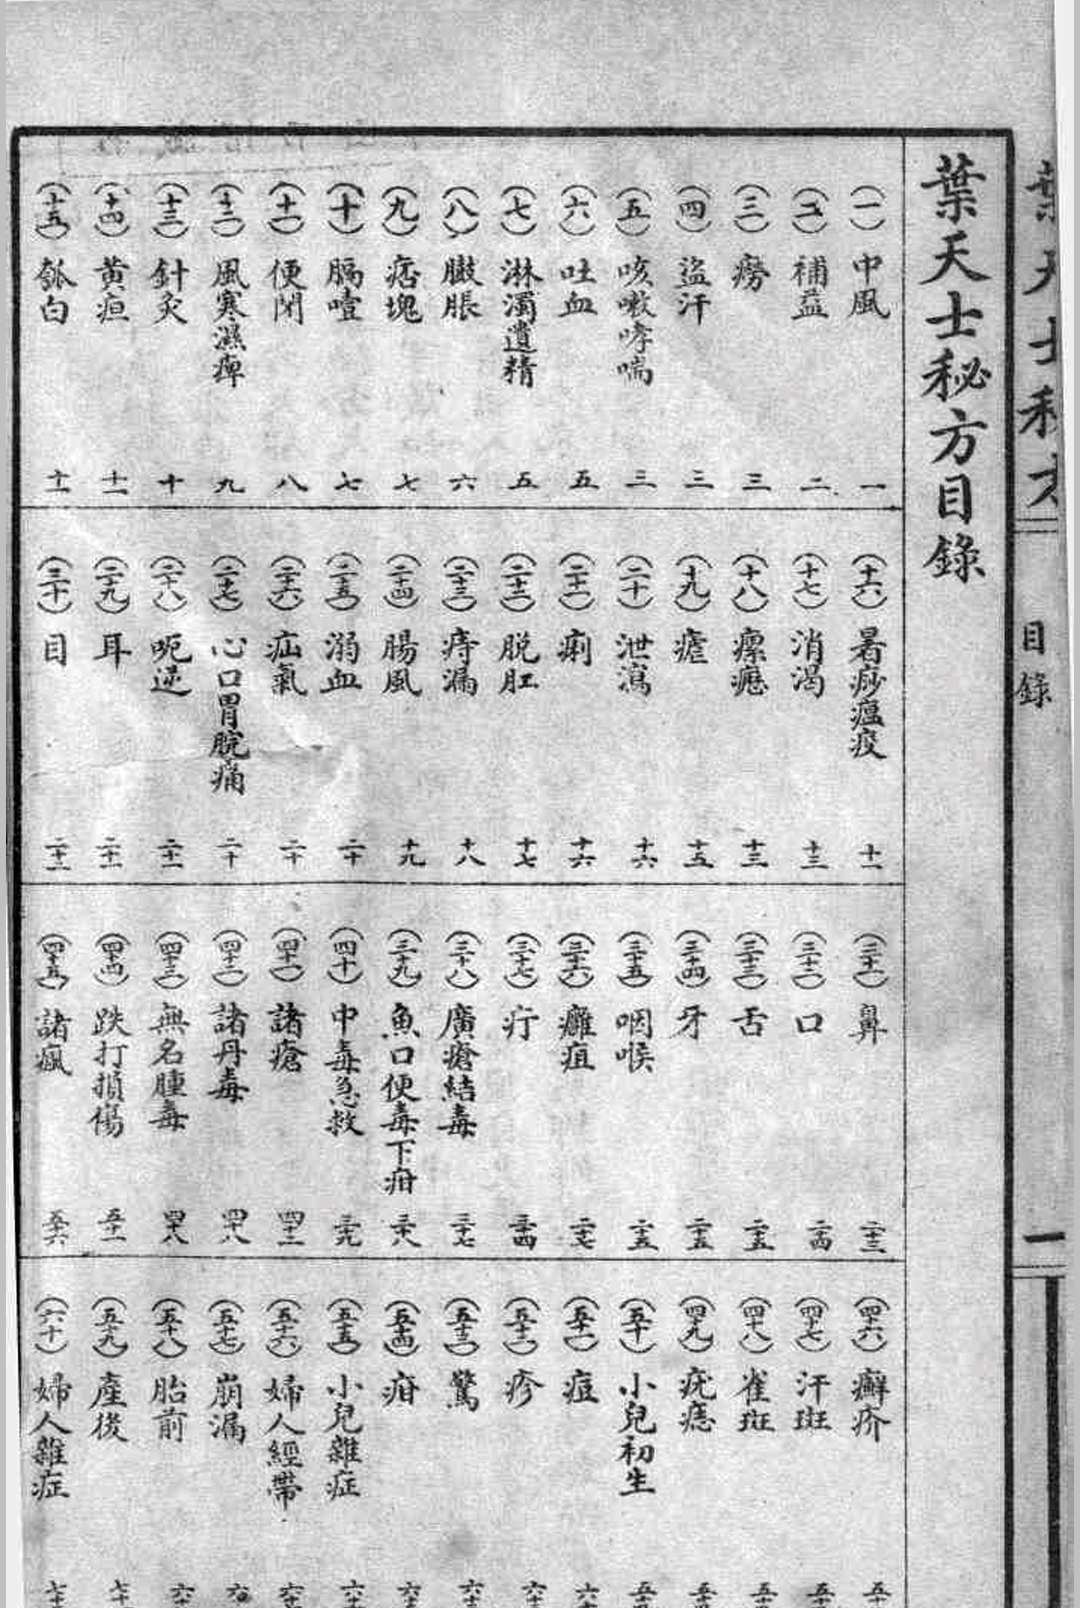 葉天士秘方目錄
(一)中風 一
(二)補益 二
(三)癆 三
(四)盜汗 三
(五)咳嗽哮喘 三
(六)吐血 五
(七)淋濁遺精 五
(八)臌脹 六
(九)痞塊 七
(十)膈噎 七
(十一)便閉 八
(十二)風寒濕痺 九
(十三)針灸 十
(十四)黃疸 十一
(十五)瓠白 十一
(十六)暑痧瘟疫 十一
(十七)消渴 十三
(十八)瘰癧 十三
(十九)瘧 十五
(二十)泄瀉 十六
(二十一)痢 十六
(二十二)脫肛 十七
(二十三)痔漏 十八
(二十四)腸風 十九
(二十五)溺血 二十
(二十六)疝氣 二十
(二十七)心口胃脘痛 二十
(二十八)呃逆 二十一
(二十九)耳 二十一
(三十)目 二十二
(三十一)鼻 二十三
(三十二)口 二十四
(三十三)舌 二十五
(三十四)牙 二十五
(三十五)咽喉 二十五
(三十六)癰疽 二十七
(三十七)疔 三十四
(三十八)廣瘡結毒 三十七
(三十九)魚口便毒下疳 三十八
(四十)中毒急救 三十九
(四十一)諸瘡 四十一
(四十二)諸丹毒 四十八
(四十三)無名腫毒 四十八
(四十四)跌打損傷 五十一
(四十五)諸瘋 五十六
(四十六)癬疥
(四十七)汗斑
(四十八)雀斑
(四十九)疣痣
(五十)小兒初生
(五十一)痘
(五十二)疹
(五十三)驚
(五十四)疳
(五十五)小兒雜症
(五十六)婦人經帶
(五十七)崩漏
(五十八)胎前
(五十九)產後
(六十)婦人雜症
目錄
一